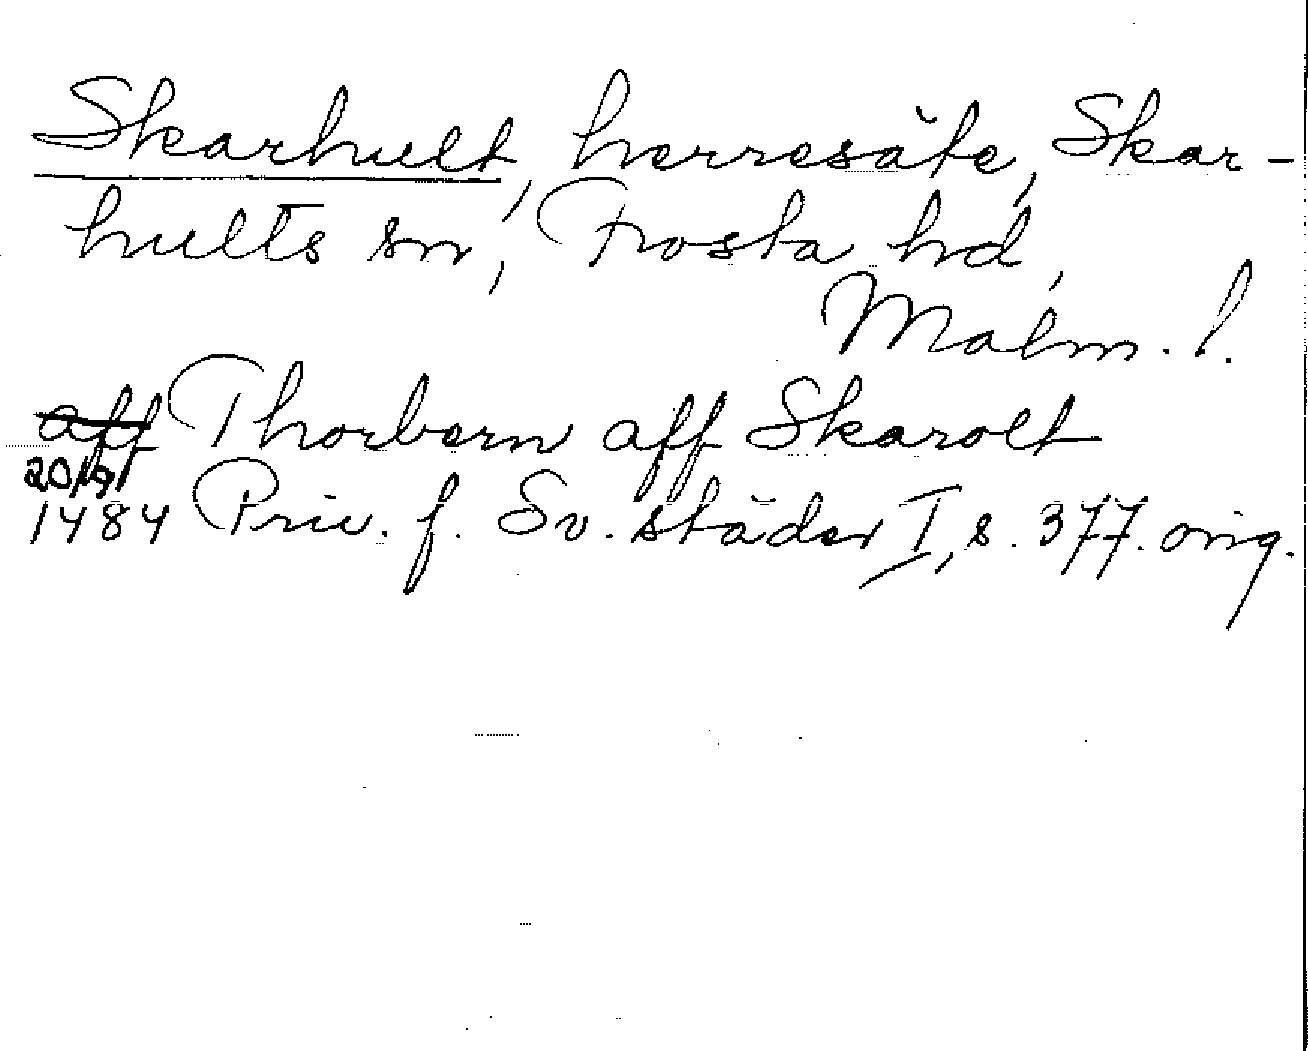 Skarhult, herresäte, Skar-
hults sn, Frosta hd,
Malm. l.
aff Thorbern aff Skarolt
1484 Priv. f. Sv. städer I, s. 377. orig.